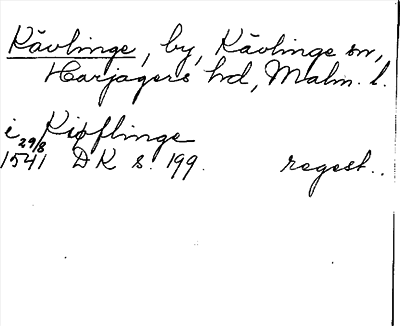 Kävlinge, by, Kävlinge sn,
Harjagers hd, Malm. l.
i Kiøflinge
29/8
1541 DK s. 199. regest..